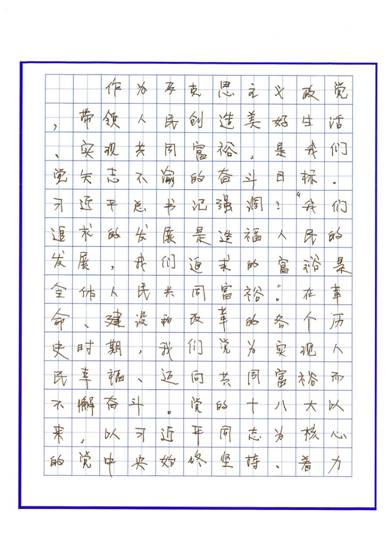 作为马克思主义政党
，带领人民创造美好生活
、实现共同富裕，是我们
党矢志不渝的奋斗目标。
习近平总书记强调：“我们
追求的发展是造福人民的
发展，我们追求的富裕是
全体人民共同富裕。”在革
命、建设和改革的各个历
史时期，我们党为实现人
民幸福、迈向共同富裕而
不懈奋斗。党的十八大以
来，以习近平同志为核心
的党中央始终坚持、着力